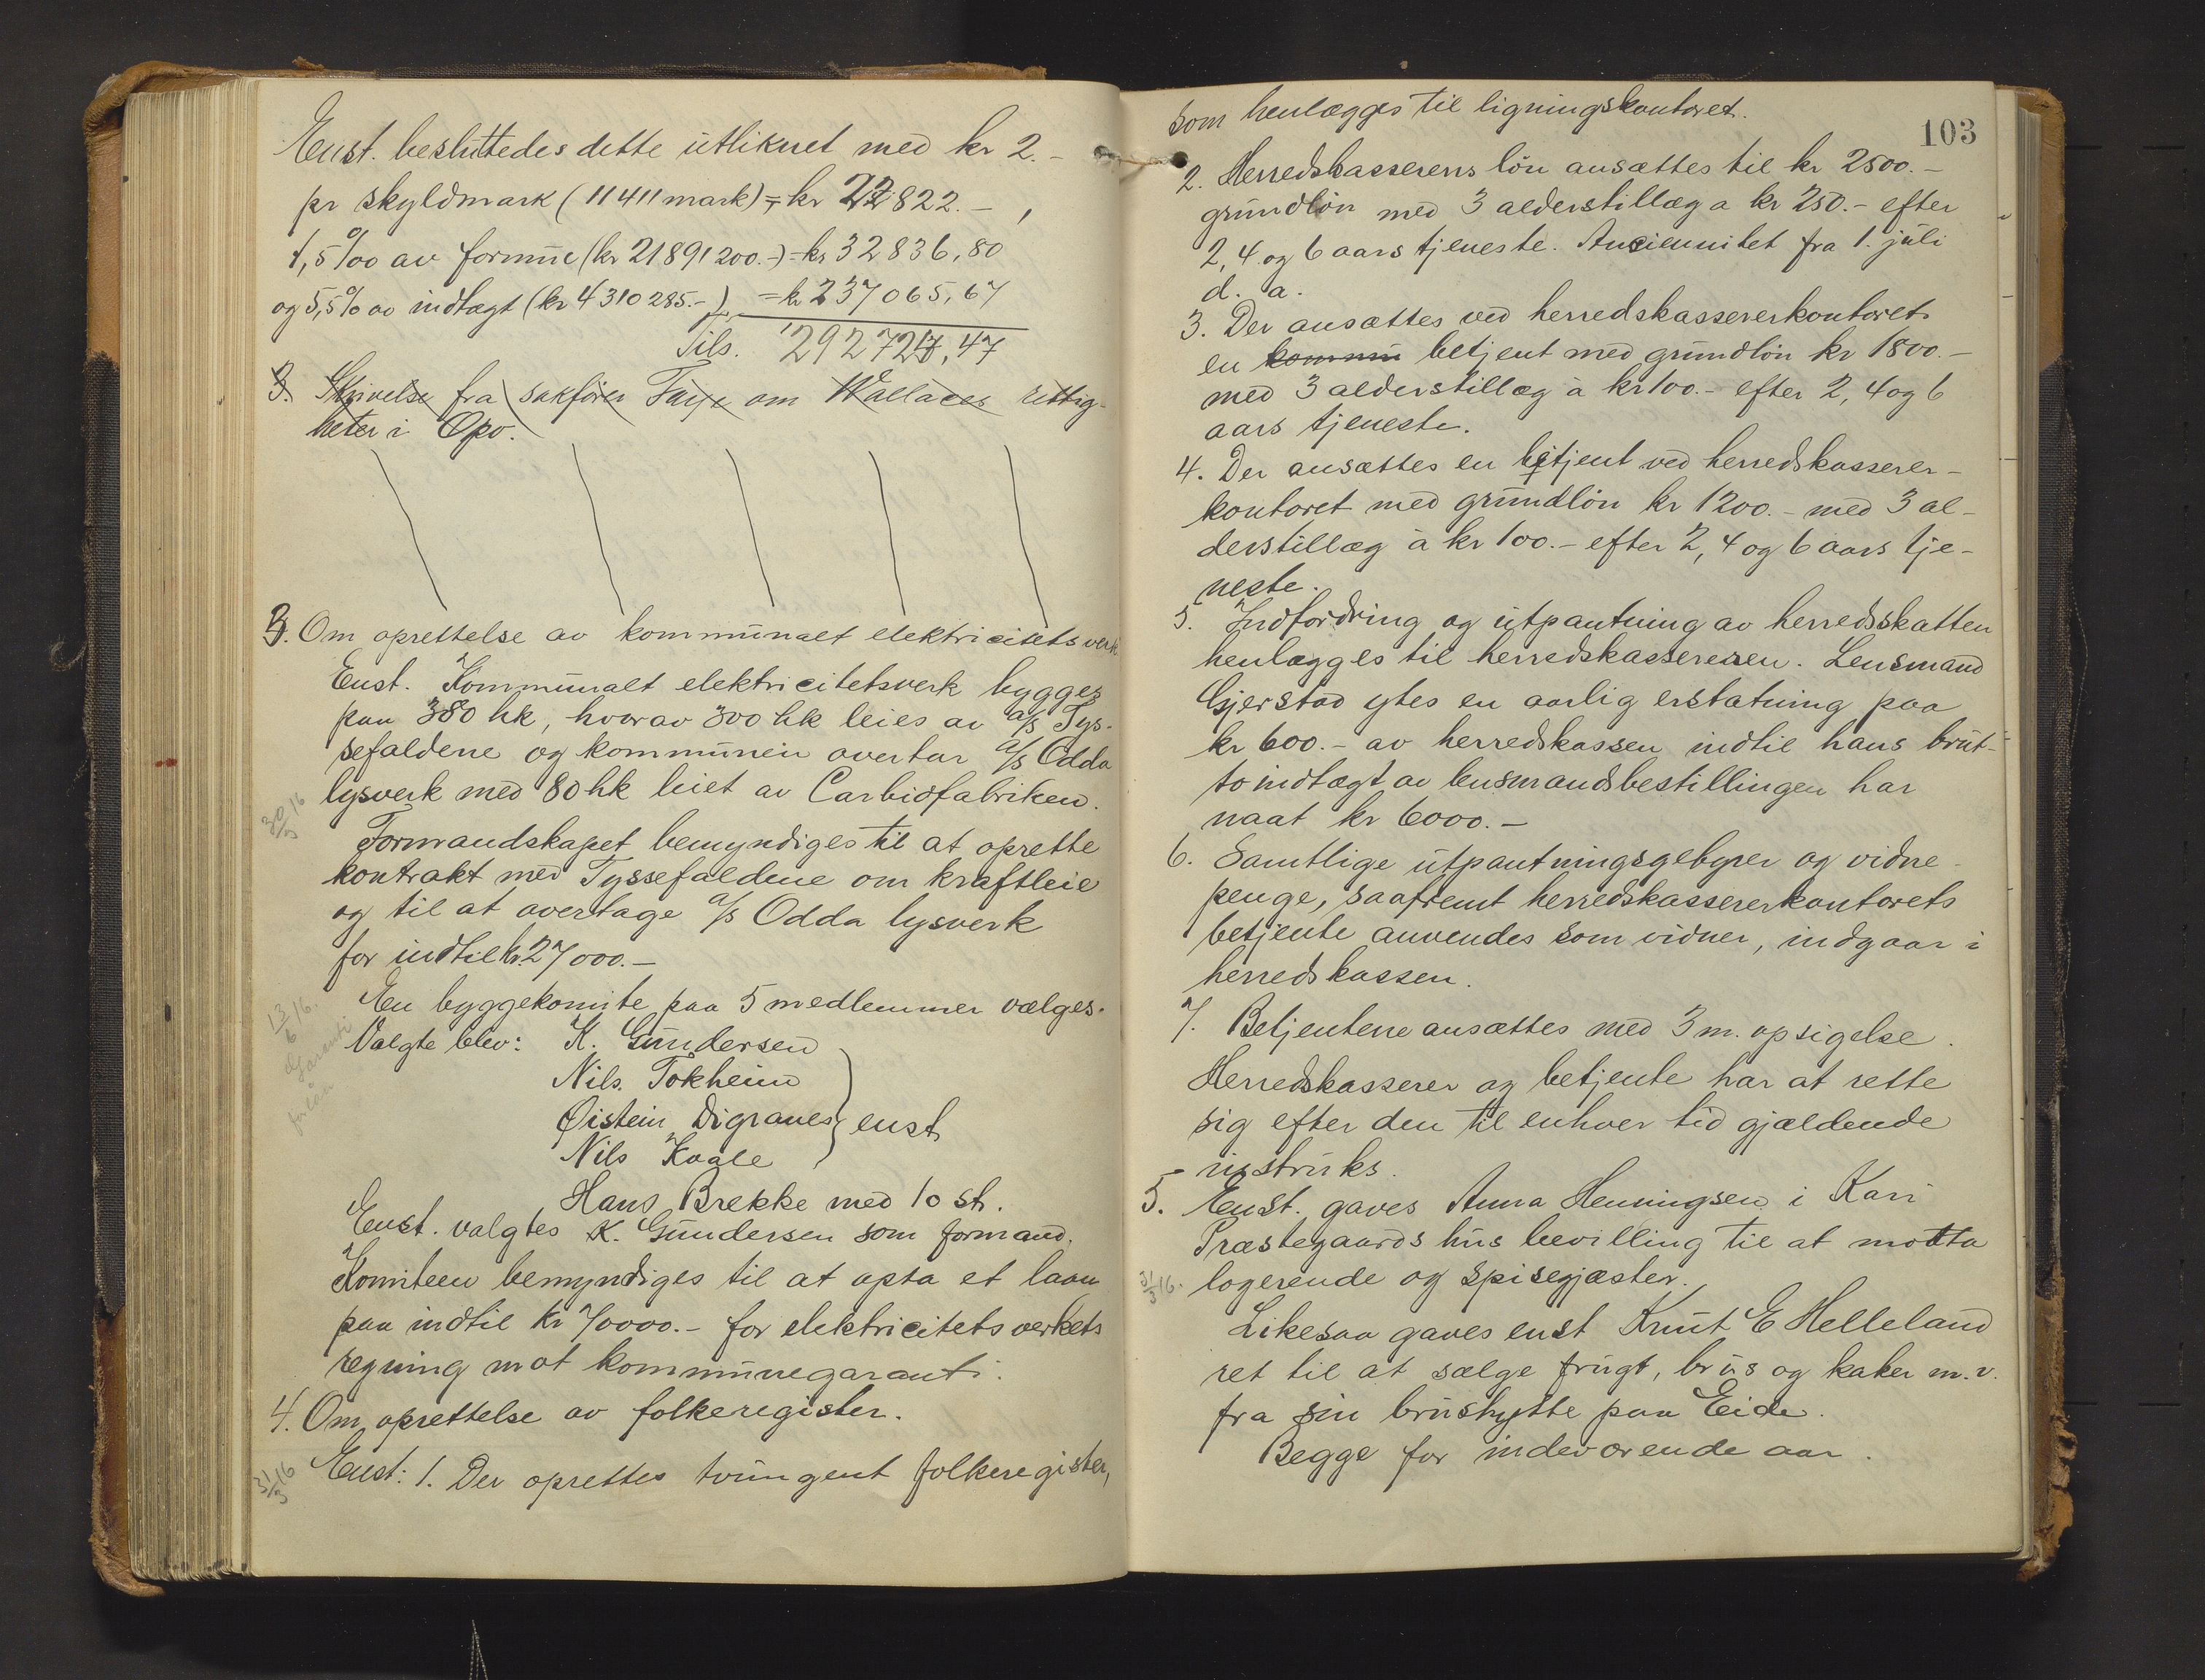 Enst. besluttedes dette utliknet med kr 2.-
pr skyldmark (11411 mark) = kr 22822.-,
1,5‰ av formue (kr 21891200.-) = kr 32836,80
og 5,5% av indtægt (kr 4310285.-) = kr 237065,67
Tils. 292724,47
3. Skrivelse fra sakfører om Wallaces rettig-
heter i Opo.
3. Om oprettelse av kommunalt elektricitetsverk
Enst. Kommunalt elektricitetsverk bygges
paa 380 hk, hvorav 300 hk leies av a/s Tys-
sefaldene og kommunen overtar a/s Odda
lysverk med 80 hk leiet av Carbidfabriken.
30/3 16
Formandskapet bemyndiges til at oprette
kontrakt med Tyssefaldene om kraftleie
og til at overtage a/s Odda lysverk
for indtil kr. 27000.-
En byggekomite paa 5 medlemmer vælges.
13/6 16.
Garanti
for lån
Valgte blev: K. Gundersen
Nils Tokheim
Øistein Digranes } enst
Nils Kvale
Hans Brekke med 10 st.
Enst. valgtes K. Gundersen som formand.
Komiteen bemyndiges til at opta et laan
paa indtil kr 70000.- for elektricitetsverkets
regning mot kommunegaranti.
4. Om oprettelse av folkeregister.
31/3 16
Enst: 1. Der oprettes tvungent folkeregister,
103
som henlægges til ligningskontoret.
2. Herredskasserens løn ansættes til kr 2500.-
grundløn med 3 alderstillæg a kr 250.- efter
2, 4 og 6 aars tjeneste. Anciennitet fra 1. juli
d. a.
3. Der ansættes ved herredskassererkontoret
en kommu betjent med grundløn kr 1800.-
med 3 alderstillæg à kr 100.- efter 2, 4 og 6
aars tjeneste.
4. Der ansættes en betjent ved herredskasserer-
kontoret med grundløn kr 1200.- med 3 al-
derstillæg à kr 100.- efter 2, 4 og 6 aars tje-
neste.
5. Indfordring og utpantning av herredsskatten
henlægges til herredskassereren. Lensmand
Gjerstad ytes en aarlig erstatning paa
kr 600.- av herredskassen indtil hans brut-
toindtægt av lensmandsbestillingen har
naat kr 6000.-
6. Samtlige utpantningsgebyrer og vidne-
penge, saafremt herredskassererkontorets
betjente anvendes som vidner, indgaar i
herredskassen.
7. Betjentene ansættes med 3 m. opsigelse.
Herredskasserer og betjente har at rette
sig efter den til enhver tid gjældende
instruks.
5. Enst. gaves Anna Henningsen i Kari
Præstegaards hus bevilling til at motta
31/3 16.
logerende og spisegjæster.
Likesaa gaves enst Knut E Helleland
ret til at sælge frugt, brus og kaker m.v.
fra sin brushytte paa Eide.
Begge for indeværende aar.